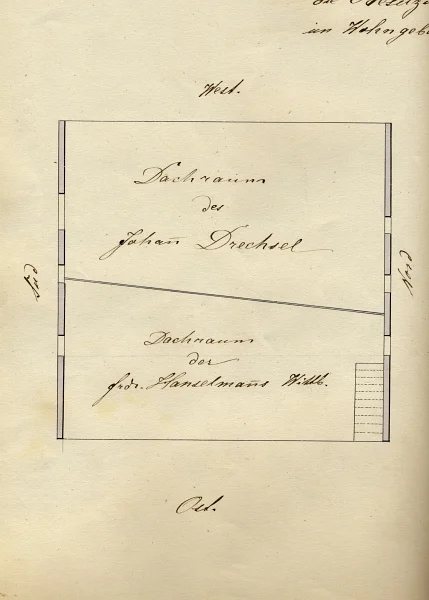 im Wohngeb
West.
Dachraum
des
Johañ Drechsel
Süd
Nord
Dachraum
der
frdr. Hanselmañs Wittb.
Ost.